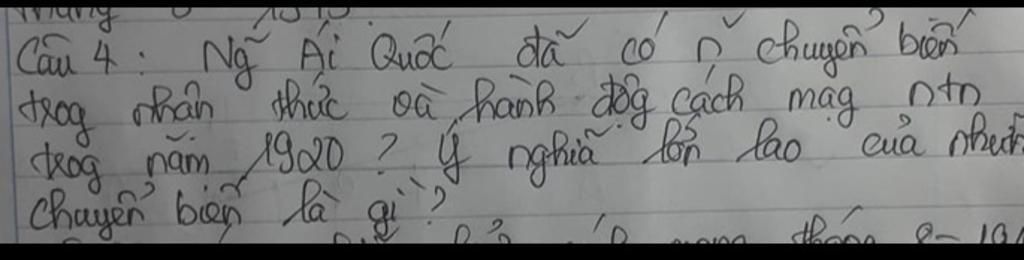 Câu 4: Ng~ Ái Quốc đã có n~ chuyển biến
trog nhận thức và hành độg cách mạg ntn
trog năm 1920? Ý nghĩa lớn lao của những
chuyển biến là gì?